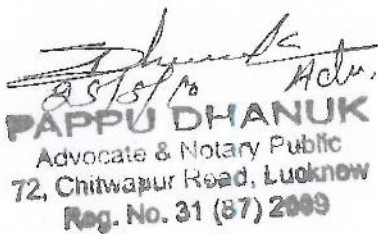 Adv.
PAPPU DHANUK
Advocate & Notary Public
72, Chitwapur Road, Lucknow
Reg. No. 31 (87) 2009